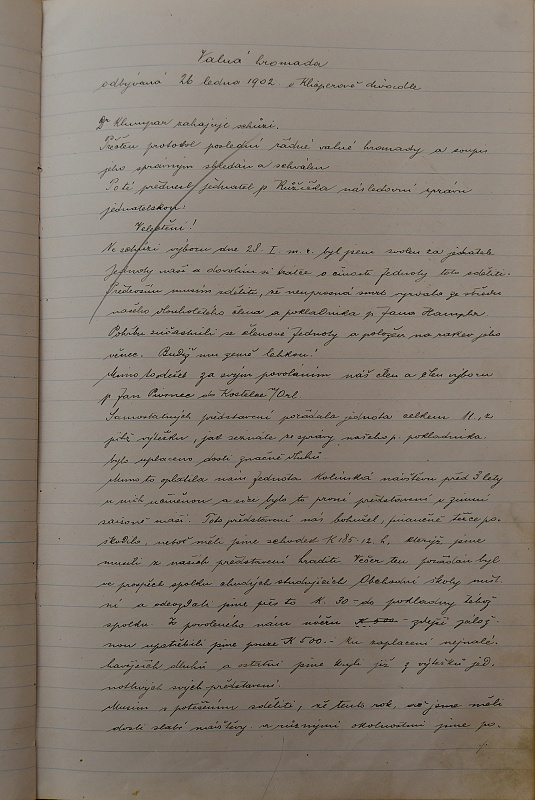 Valná hromada
odbývaná 26 ledna 1902 v Klicperově divadle
Dr Klumpar zahajuje schůzi.
Přečten protokol poslední řádné valné hromady a
jeho správným shledán a schválen
Poté přednesl jednatel p. Růžička následovní zprávu
jednatelskou:
Velectění!
Ve schůzi výboru dne 28. I. m. r. byl jsem zvolen za jednatele
Jednoty naší a dovoluji si krátce o činnosti Jednoty této sděliti.
Především musím sděliti, že neúprosná smrt vyrvala ze středu
našeho dlouholetého člena a pokladníka p. Jana Hampla
Pohřbu súčastnili se členové Jednoty a položen na rakev jeho
věnec. Budiž mu země lehkou!
Mimo to odešel za svým povoláním náš člen a člen výboru
p. Jan do Kostelce n/Orl
Samostatných představení pořádala jednota celkem 11, z
jichž výtěžku, jak seznáte ze zprávy našeho p. pokladníka
bylo uplaceno dosti značně dluhů
Mimo to oplatila nám Jednota Kolínská návštěvu před 3 lety
u nich učiněnou a sice bylo to první představení v zimní
saisoně naší. Toto představení nás bohužel, finančně těžce po-
škodilo, neboť měli jsme schodek K 185 12 h, kterýž jsme
museli z našich představení hraditi Večer ten pořádán byl
ve prospěch spolku chudých studujících Obchodní školy míst-
ní a odevzdali jsme přes to K. 30- do pokladny téhož
spolku. Z povoleného nám úvěru K 800 zdejší zálož-
nou upotřebili jsme pouze K 500.- ku zaplacení nejnalé-
havějších dluhů a ostatní jsme kryli již z výtěžků jed-
notlivých svých představení.
Musím s potěšením sděliti, že tento rok, ač jsme měli
dosti slabé návštěvy a různými okolnostmi jsme po-